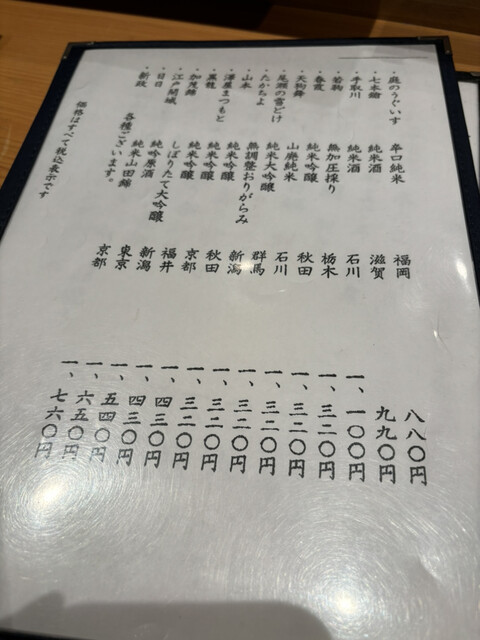 ・庭のうぐいす 辛口純米 福岡 八八〇円
・七本鎗 純米酒 滋賀 九九〇円
・手取川 純米酒 石川 一、一〇〇円
・若駒 無加圧採り 栃木 一、三二〇円
・春霞 純米吟醸 秋田 一、三二〇円
・天狗舞 山廃純米 石川 一、三二〇円
・尾瀬の雪どけ 純米大吟醸 群馬 一、三二〇円
・たかちよ 無調整おりがらみ 新潟 一、三二〇円
・山本 純米吟醸 秋田 一、三二〇円
・澤屋まつもと 純米吟醸 京都 一、四三〇円
・黒龍 純米吟醸 福井 一、四三〇円
・加茂錦 しぼりたて大吟醸 新潟 一、五四〇円
・江戸開城 純吟原酒 東京 一、六五〇円
・日日 純米山田錦 京都 一、七六〇円
・新政 各種ございます。
価格はすべて税込表示です